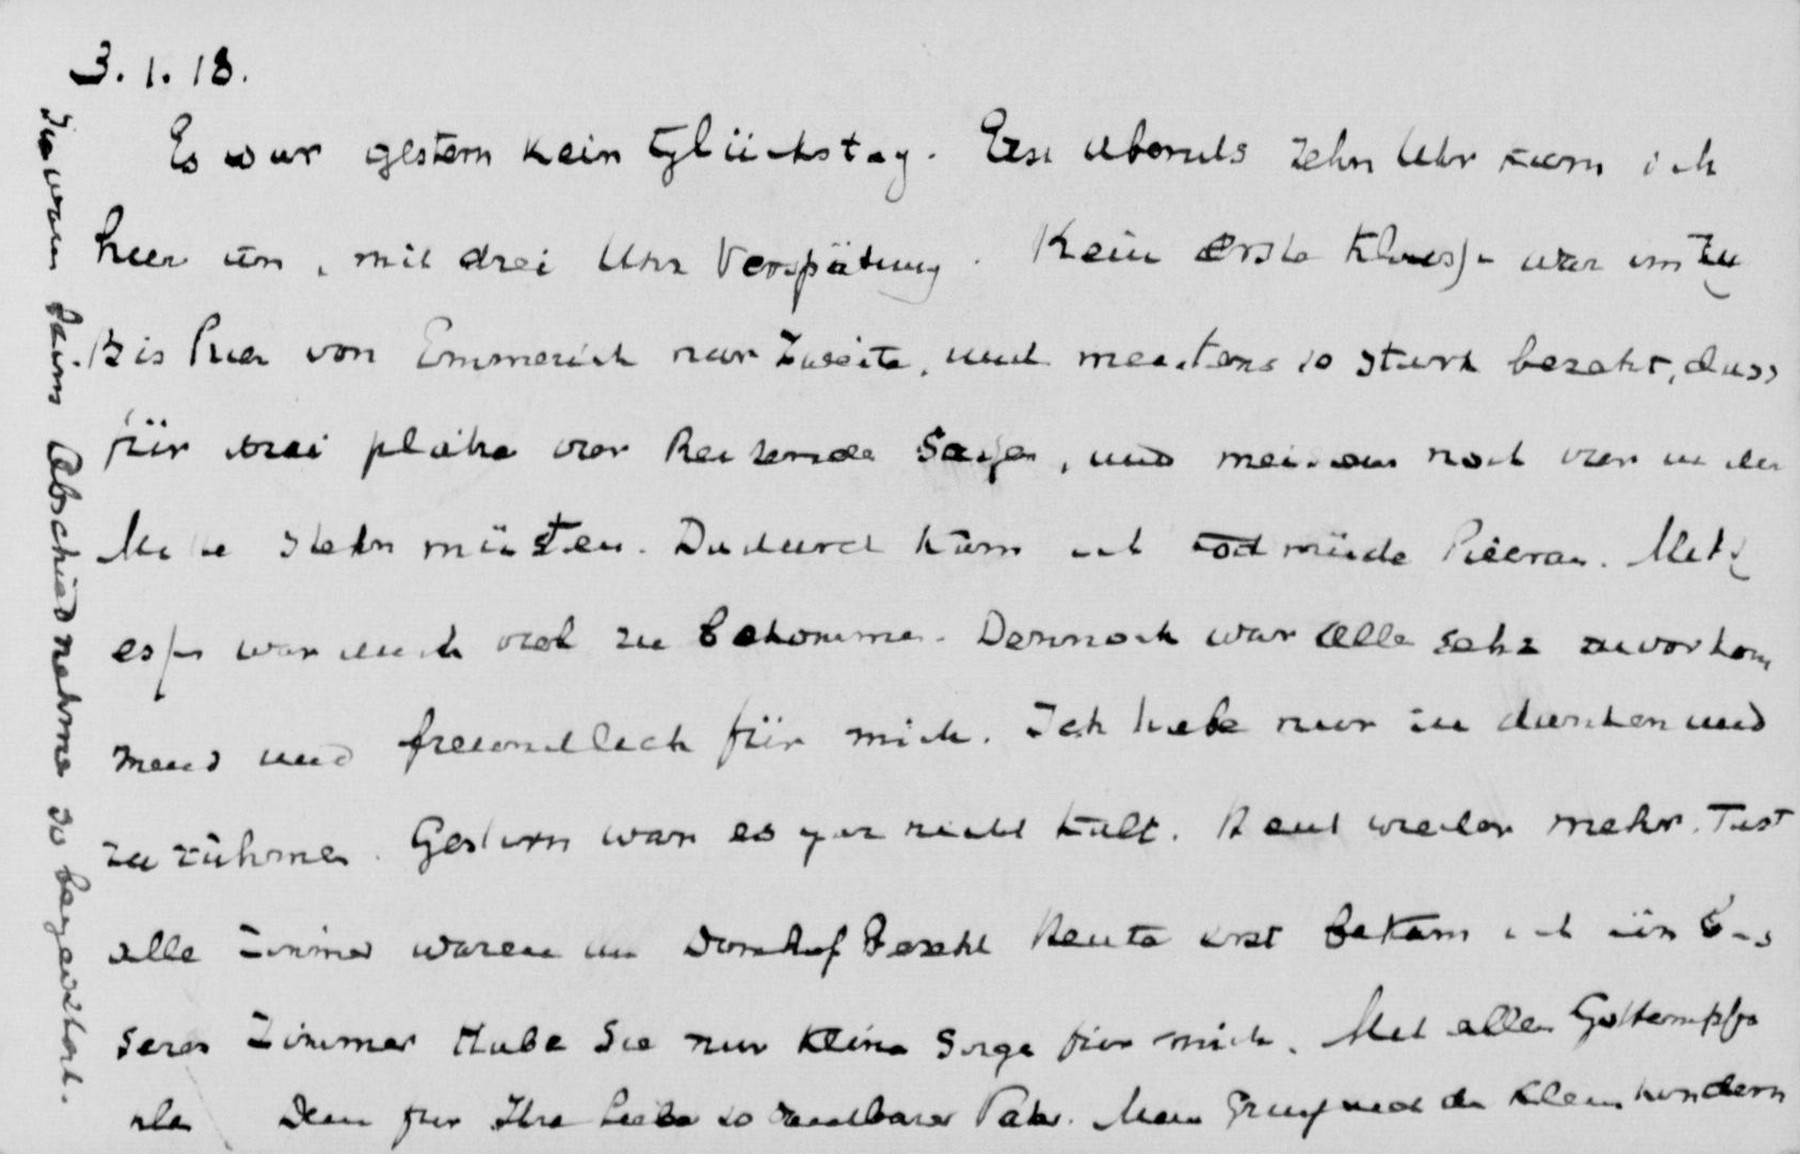 3.1.18.
Es war gestern kein Glückstag. Erst abends zehn Uhr kam ich
hier an, mit drei Uhr Verspätung. Kein erste Klasse war im Zug
Bis hier von Emmerich nur Zweite, und meistens so stark besetzt, dass
für drei plätze vier Reizende Sassen, und meistens noch vier in der
Mitte stehn müsten. Dadurch kam ich tod müde hieran. Mit
essen war auch viel zu bekommen. Dennoch war alle sehr zuvorkom
mend und freundlich für mich. Ich habe nur zu danken und
zu rühmen. Gestern war es gar nicht kalt. Heut wieder mehr. Fast
alle Zimmer waren im Domhof Besetzt Heute erst bekam ich ein bes
seres Zimmer Habe Sie nur kleine Sorge für mich. Mit allen Gottempfo
len Dem für Ihre Liebe so dankbarer Pater. Mein Gruss und den kleinkindern
Sie waren beim Abschiednehmen so begeistert.